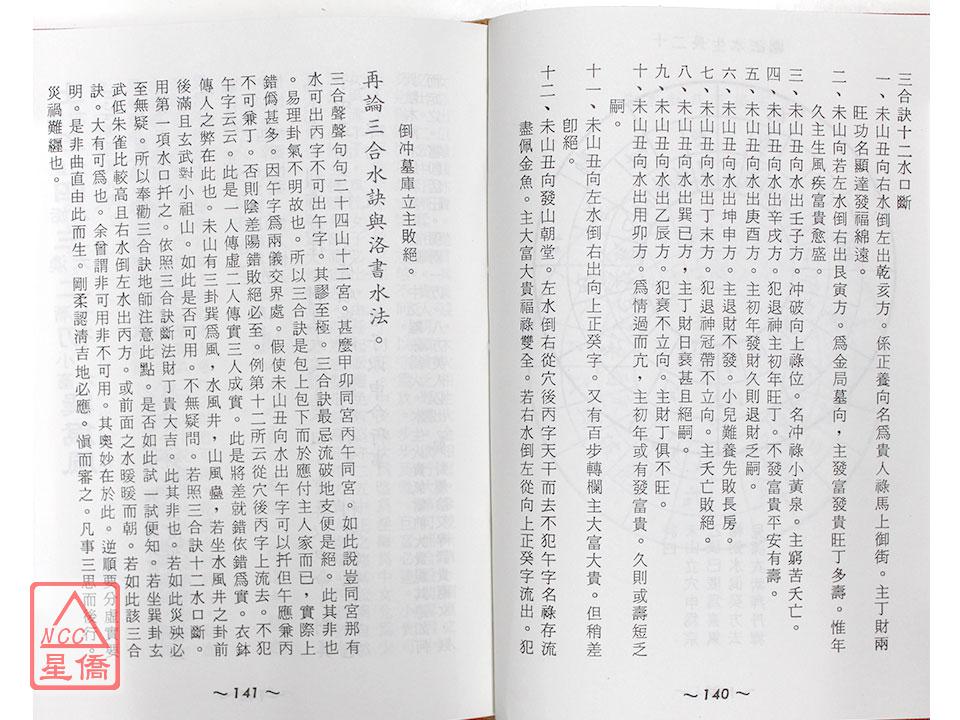 三合訣十二水口斷
一、未山丑向右水倒左出乾亥方。係正養向名爲貴人祿馬上御街。主丁財兩
旺功名顯達發福綿遠。
二、未山丑向若左水倒右出艮寅方。爲金局墓向，主發富發貴旺丁多壽。惟年
久主生風疾富貴愈盛。
三、未山丑向水出壬子方。冲破向上祿位。名冲祿小黃泉。主窮苦夭亡。
四、未山丑向水出辛戌方。犯退神主初年旺丁。不發富貴平安有壽。
五、未山丑向水出庚酉方。主初年發財久則退財乏嗣。
六、未山丑向水出坤申方。主退財不發。小兒難養先敗長房。
七、未山丑向水出丁末方。犯退神冠帶不立向。主夭亡敗絕。
八、未山丑向水出巽巳方，主丁財日衰甚且絕嗣。
九、未山丑向水出乙辰方。犯衰不立向。主財丁俱不旺。
十、未山丑向水出用卯方。爲情過而亢，主初年或有發富貴。久則或壽短乏
嗣。
十一、未山丑向左水倒右出向上正癸字。又有百步轉欄主大富大貴。但稍差
卽絕。
十二、未山丑向發山朝堂。左水倒右從穴後丙字天干而去不犯午字名祿存流
盡佩金魚。主大富大貴福祿雙全。若右水倒左從向上正癸字流出。犯
～140～
倒冲墓庫立主敗絕。
再論三合水訣與洛書水法。
三合聲聲句句二十四山十二宮。甚麼甲卯同宮丙午同宮。如此說豈同宮那有
水可出丙字不可出午字。其謬至極。三合訣最忌流破地支便是絕。此其非也
。易理卦氣不明故也。所以三合訣是包上包下而於應付主人家而已，實際上
錯僞甚多。因午字爲兩儀交界處。假使未山丑向水出午字可以扦但午應兼內
不可兼丁。否則陰差陽錯敗絕必至。例第十二所云從穴後丙字上流去。不犯
午字云云。此是一人傳虛二人傳實三人成實。此是將差就錯依錯爲實。衣鉢
傳人之弊在此也。未山有三卦巽爲風，水風井，山風蠱，若坐水風井之卦前
後滿且玄武對小祖山。如此是否可用。不無疑問。若照三合訣十二水口斷。
用第一項水口扦之。依照三合訣斷法財丁貴大吉。此其非也。若如此災殃必
至無疑。所以奉勸三合訣地師注意此點。是否如此試一試便知。若坐巽卦玄
武低朱雀比較高且右水倒左水出丙方。或前面之水暖暖而朝。若如此該三合
訣。大有可爲也。余曾謂非可用非不可用。其奧妙在於此。逆順要分虛實要
明。是非曲直由此而生。剛柔認淸吉地必應。愼而審之。凡事三思而後行。
災禍難纒也。
～141～
NCC
星僑